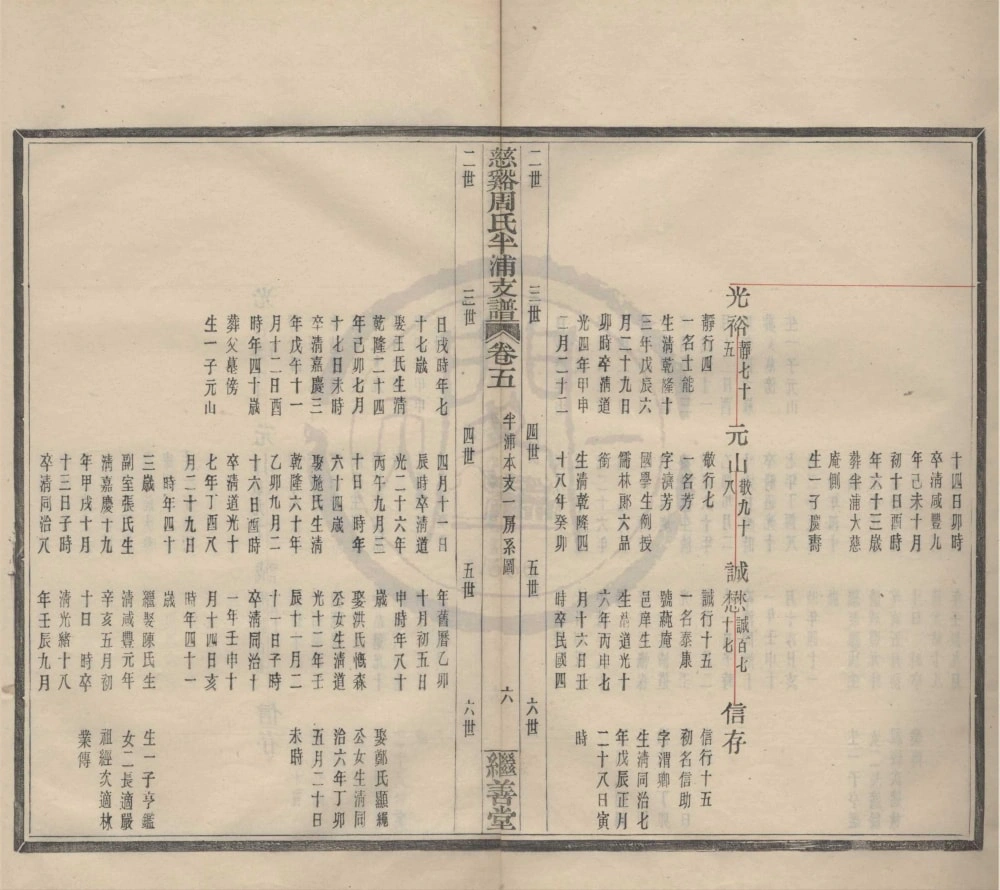 十四日卯時
卒清咸豐九
年己未十月
初十日酉時
年六十三歲
葬半浦大慈
庵側
生一子慶壽
光裕 靜七十五
元山 敬九十八
誠懋 誠百七十七
信存
靜行四
一名士能
字濟芳
生清乾隆十
三年戊辰六
月二十九日
卯時卒清道
光四年甲申
二月二十二
敬行七
一名芳
國學生例授
儒林郎六品
銜
生清乾隆四
十八年癸卯
誠行十五
一名泰康
號蒓庵
邑庠生
生清道光十
六年丙申七
月十六日丑
時卒民國四
信行十五
初名信助
字渭卿
生清同治七
年戊辰正月
二十八日寅
時
二世 三世 四世 五世 六世
慈谿周氏半浦支譜 卷五 半浦本支一房系圖 六 繼善堂
二世 三世 四世 五世 六世
日戌時年七
十七歲
娶王氏生清
乾隆二十四
年己卯七月
十七日未時
卒清嘉慶三
年戊午十一
月十二日酉
時年四十歲
葬父墓傍
生一子元山
四月十一日
辰時卒清道
光二十六年
丙午九月三
十日 時年
六十四歲
娶施氏生清
乾隆六十年
乙卯九月二
十六日酉時
卒清道光十
七年丁酉八
月二十九日
時年四十
三歲
副室張氏生
清嘉慶十九
年甲戌十月
十三日子時
卒清同治八
年舊曆乙卯
十月初五日
申時年八十
歲
娶洪氏慨森
公女生清道
光十二年壬
辰十一月二
十一日子時
卒清同治十
一年壬申十
月十四日亥
時年四十一
歲
繼娶陳氏生
清咸豐元年
辛亥五月初
十日 時卒
清光緒十八
年壬辰九月
娶鄭氏顯繩
公女生清同
治六年丁卯
五月二十日
未時
生一子亨鑑
女二長適嚴
祖經次適林
業傳